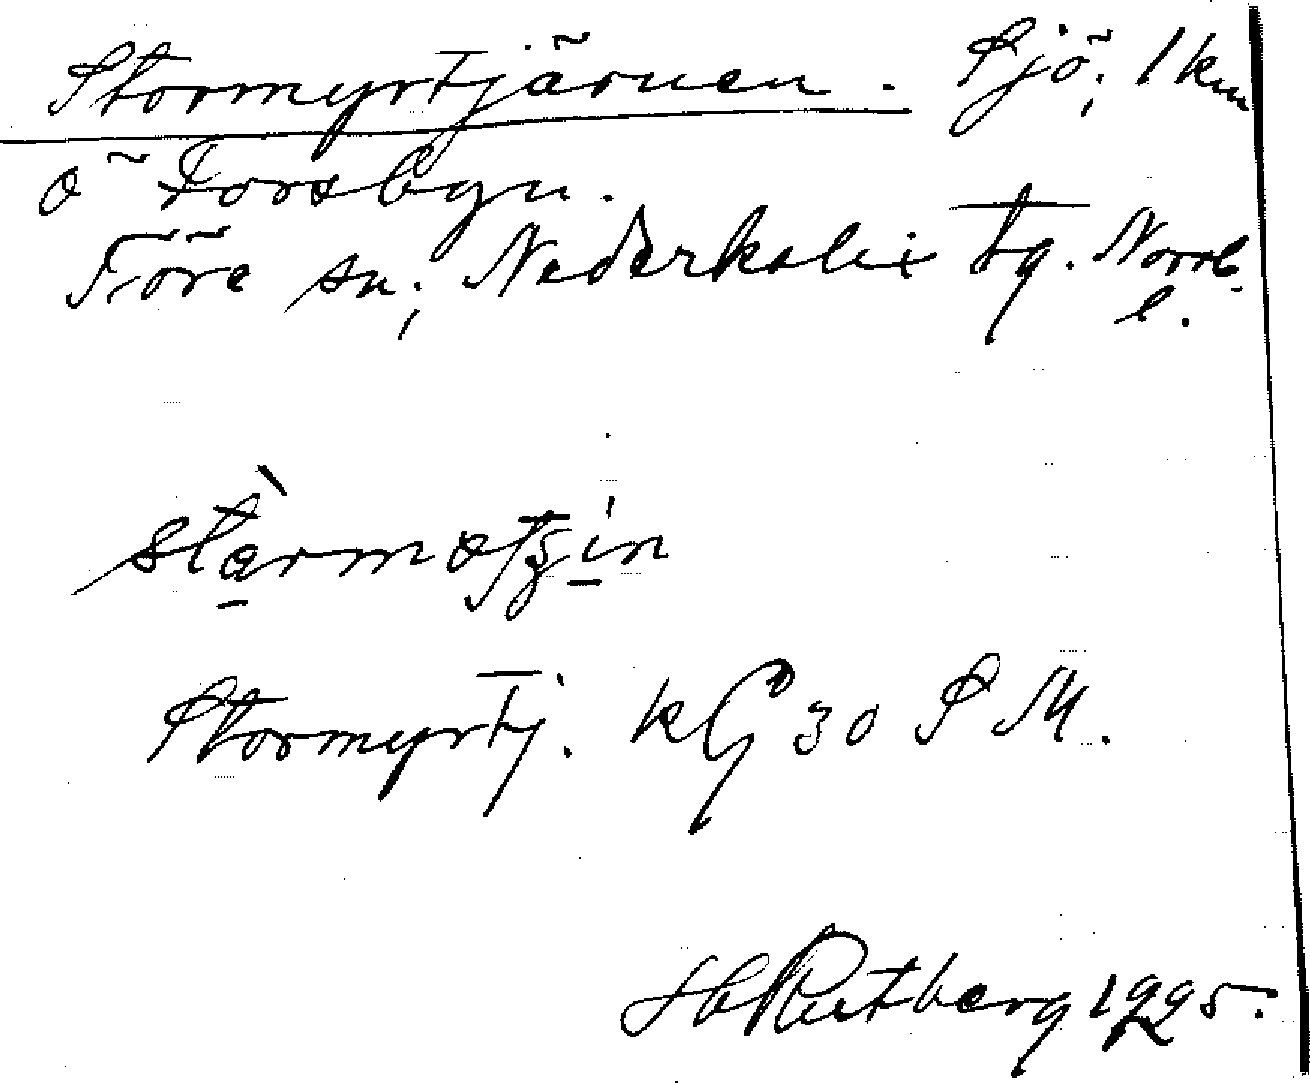 Stormyrtjärnen. Sjö, 1 km
ö Forsbyn.
Töre sn, Nederkalix tg. Norrb.
l.
Stormyrtj. kG 30 S M.
H Rutberg 1925.